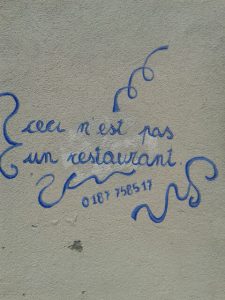 ceci n'est pas
un restaurant.
0187 758517